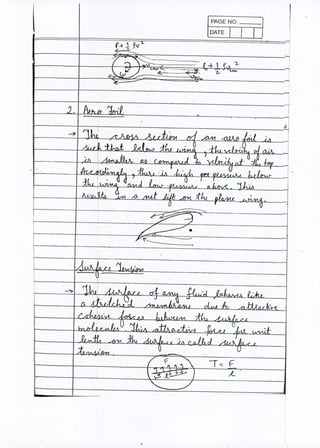 PAGE NO.
DATE
P + 1/2 ρv²
ω
2. Aero Foil
→ The cross section of an aero foil is
such that below the wing, the velocity of air
is smaller as compared to velocity at the top
Accordingly, there is high pressure below
the wing and low pressure above. This
results in a net lift on the plane wing.
Surface Tension
→ The surface of any fluid behaves like
a stretched membrane due to attractive
cohesive forces between the surface
molecules. This attractive force per unit
lenth on the surface is called surface
tension.
F
T = F
l